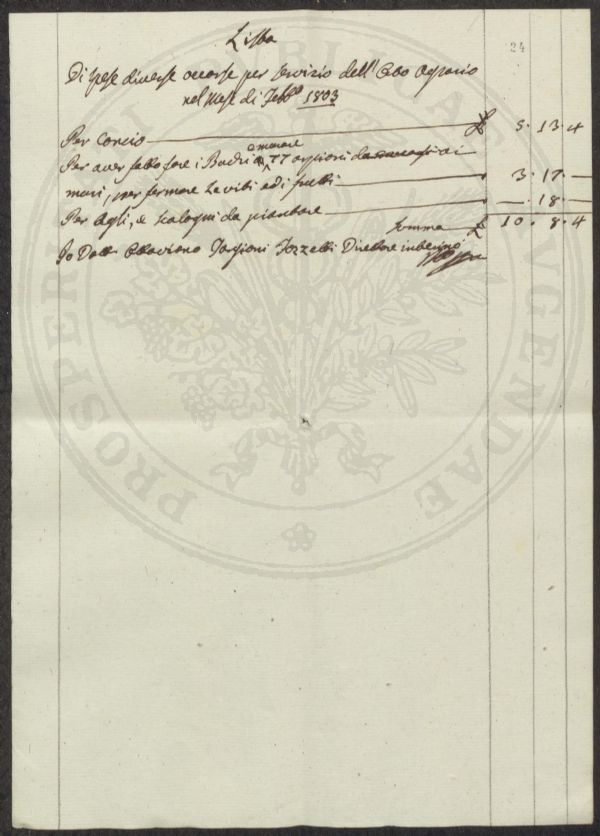 24
Lista
Di spese diverse occorse per servizio dell'Orto Agrario
nel Mese di Febb.º 1803
Per Concio £ 5. 13. 4
e murare
Per aver fatto fare i Buchi 77 arpioni ai
muri, per fermare le viti ed i frutti 3. 17. —
Per Agli, e Scalogni da piantare —. 18. —
Somma £ 10. 8. 4
Io Dott. Ottaviano Targioni Tozzetti Direttore
PROSPERITATI PUBLICAE AUGENDAE